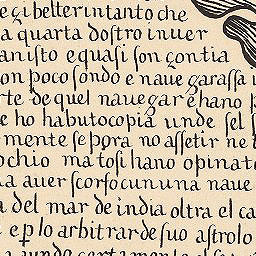 e çi better intanto che
a quarta dostro inuer
anisto e quasi son çontia
on poco fondo e naue garassa
rte de quel nauegar e hano p
e ho habuto copia unde sel
mente se pora no assetir ne
ochio ma tosi hano opinato
a auer scorso cun una naue
a del mar de india oltra el ca
e p lo arbitrar de suo astrolo